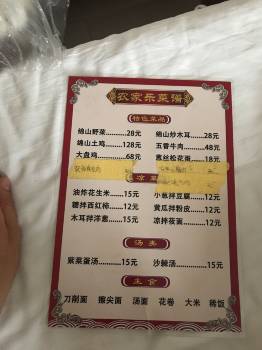 农家乐菜谱
特色菜品
绵山野菜……28元 绵山炒木耳……28元
绵山土鸡……128元 五香牛肉……48元
大盘鸡……68元 葱丝松花蛋……18元
凉菜
油炸花生米……15元 小葱拌豆腐……12元
糖拌西红柿……10元 黄瓜拌粉皮……12元
木耳拌洋葱……15元 凉拌莜面……12元
汤类
紫菜蛋汤……15元 沙棘汤……15元
主食
刀削面 擦尖面 汤面 花卷 大米 稀饭